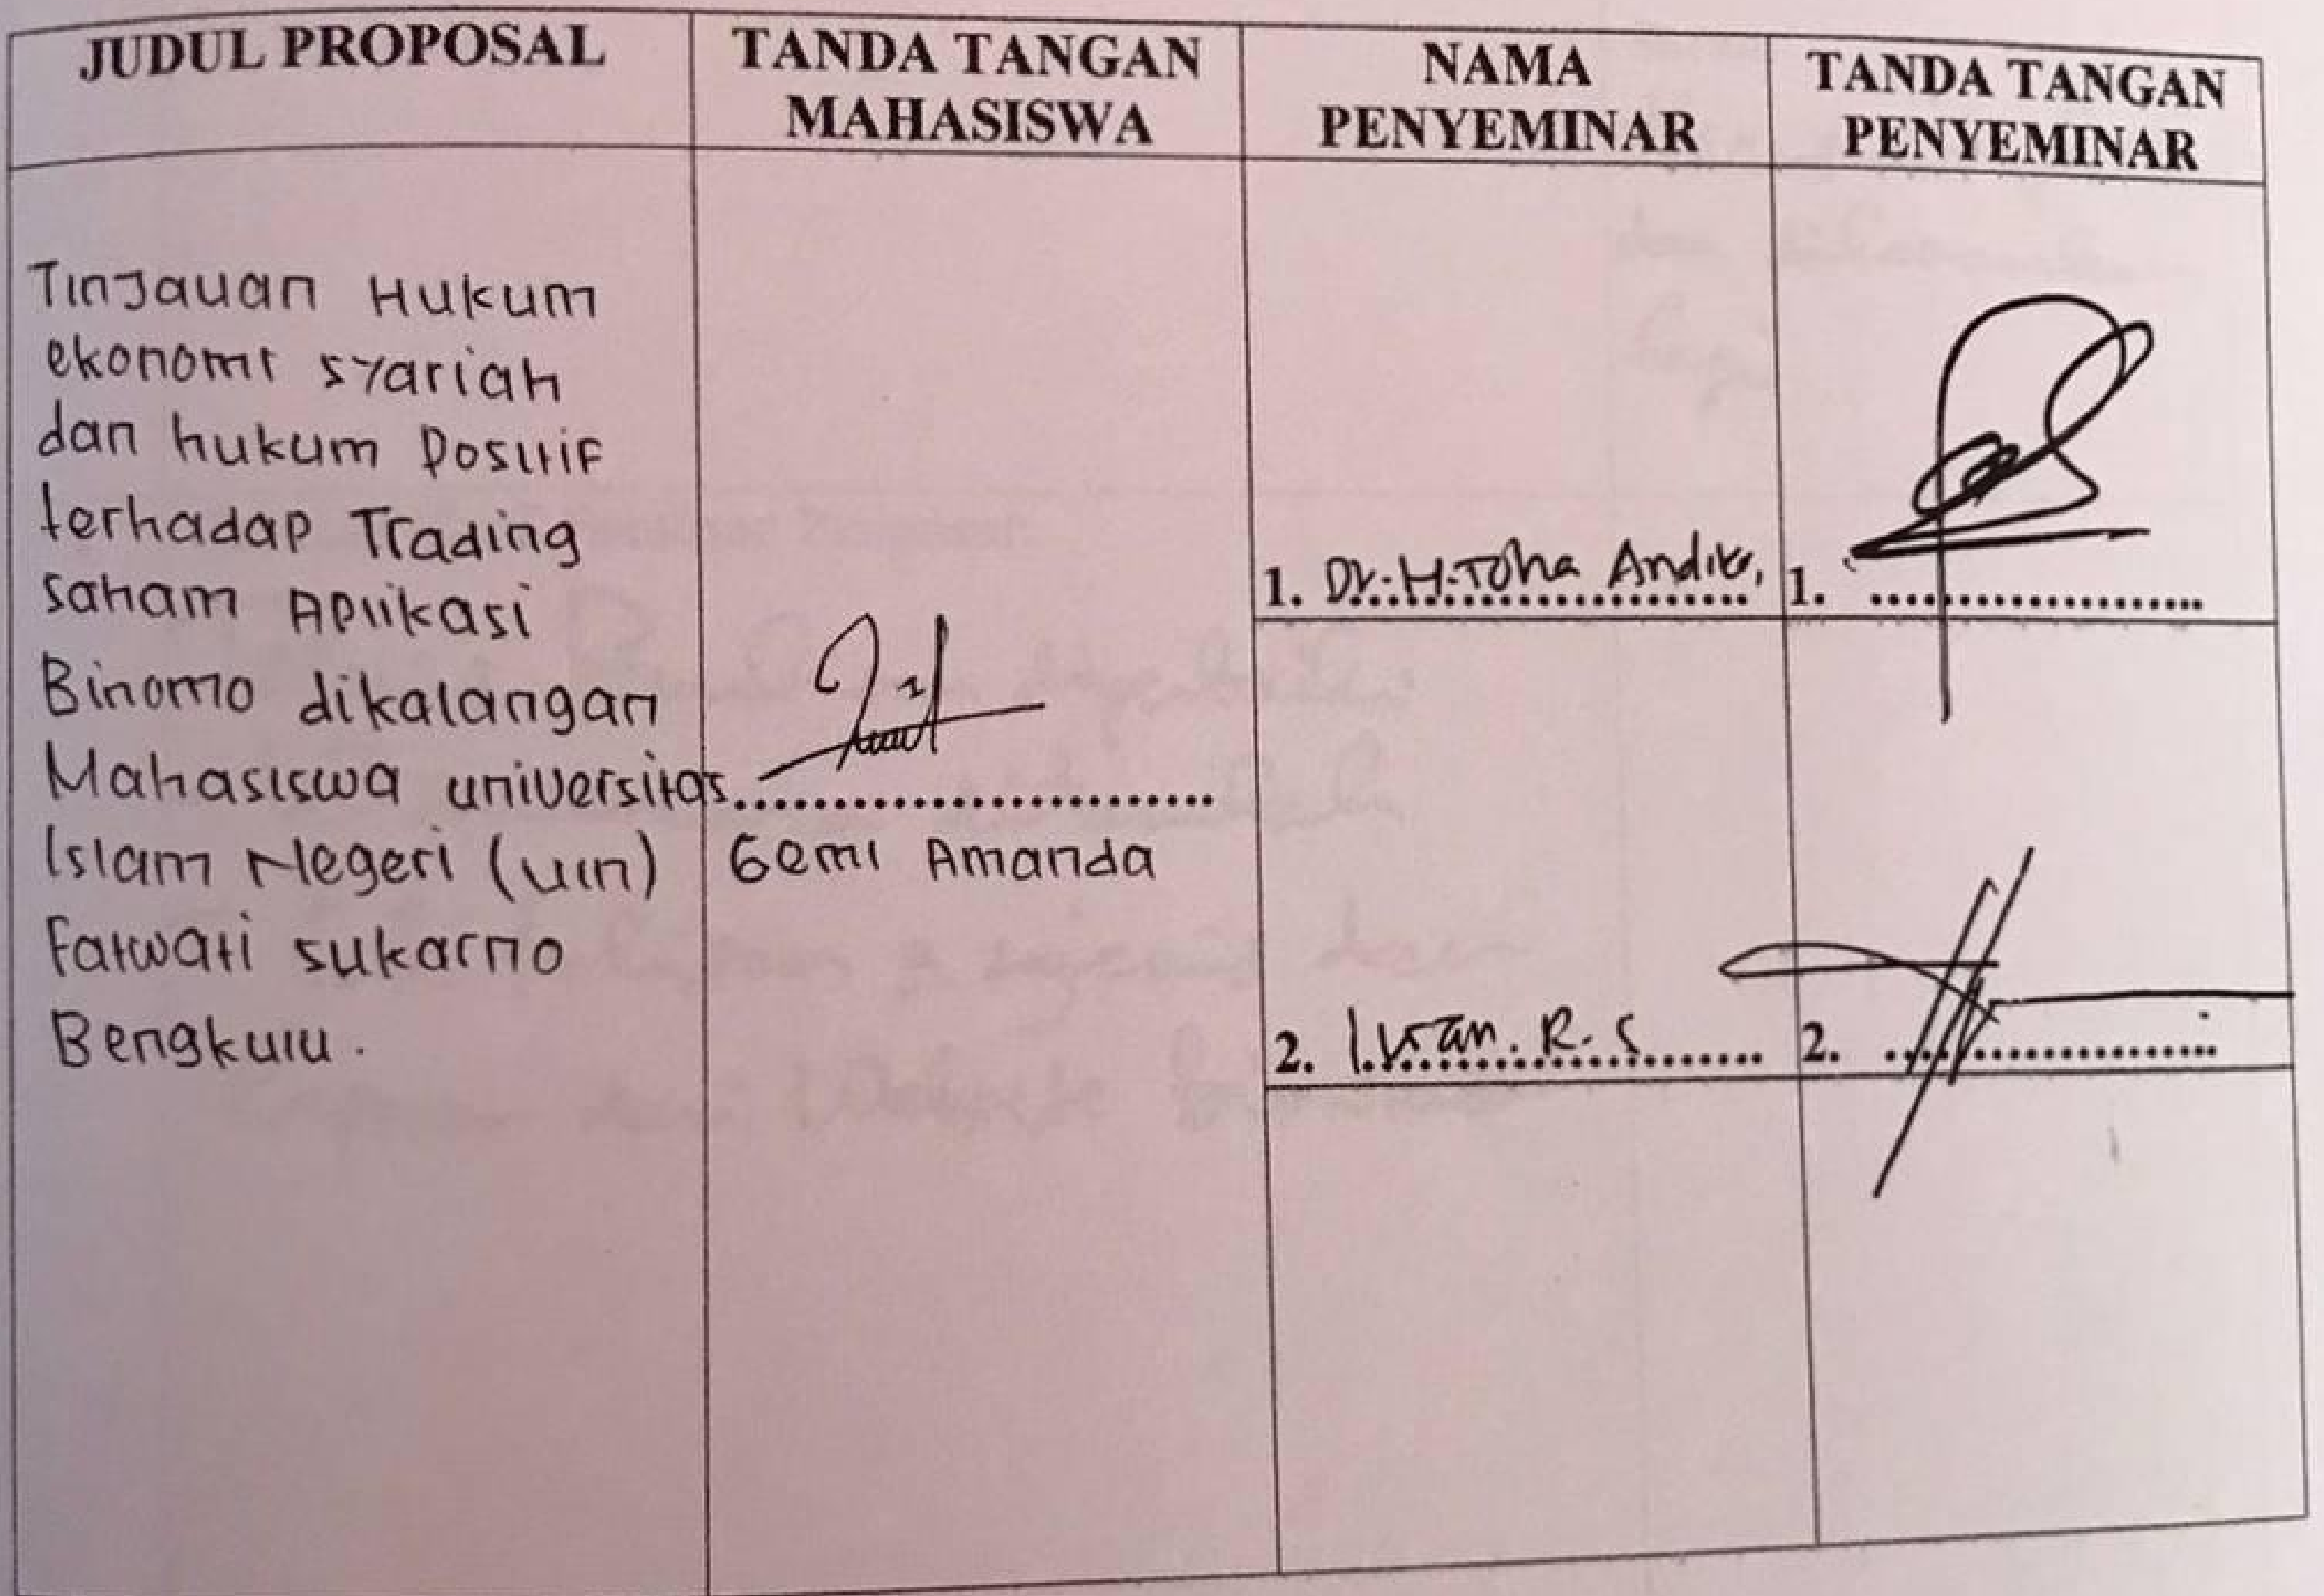 JUDUL PROPOSAL
TANDA TANGAN
MAHASISWA
NAMA
PENYEMINAR
TANDA TANGAN
PENYEMINAR
Tinjauan Hukum
ekonomi syariah
dan hukum Positif
terhadap Trading
saham Aplikasi
Binomo dikalangan
Mahasiswa universitas
Islam Negeri (uin)
Fatwati sukarno
Bengkulu.
Gemi Amanda
1. Dr. H. Toha Andiko,
1.
2. Iwan. R. S
2.